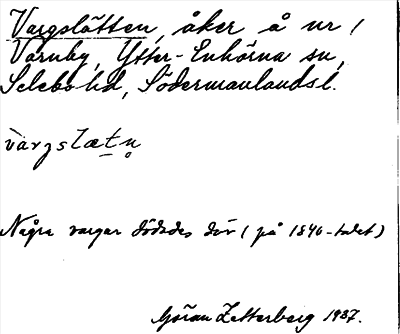 Vargslätten, åker å nr 1
Vårnby, Ytter-Enhörna sn,
Selebo hd, Södermanlandsl.
vàrgslætn̥
Några vargar dödades där (på 1840-talet)
Göran Zetterberg 1937.